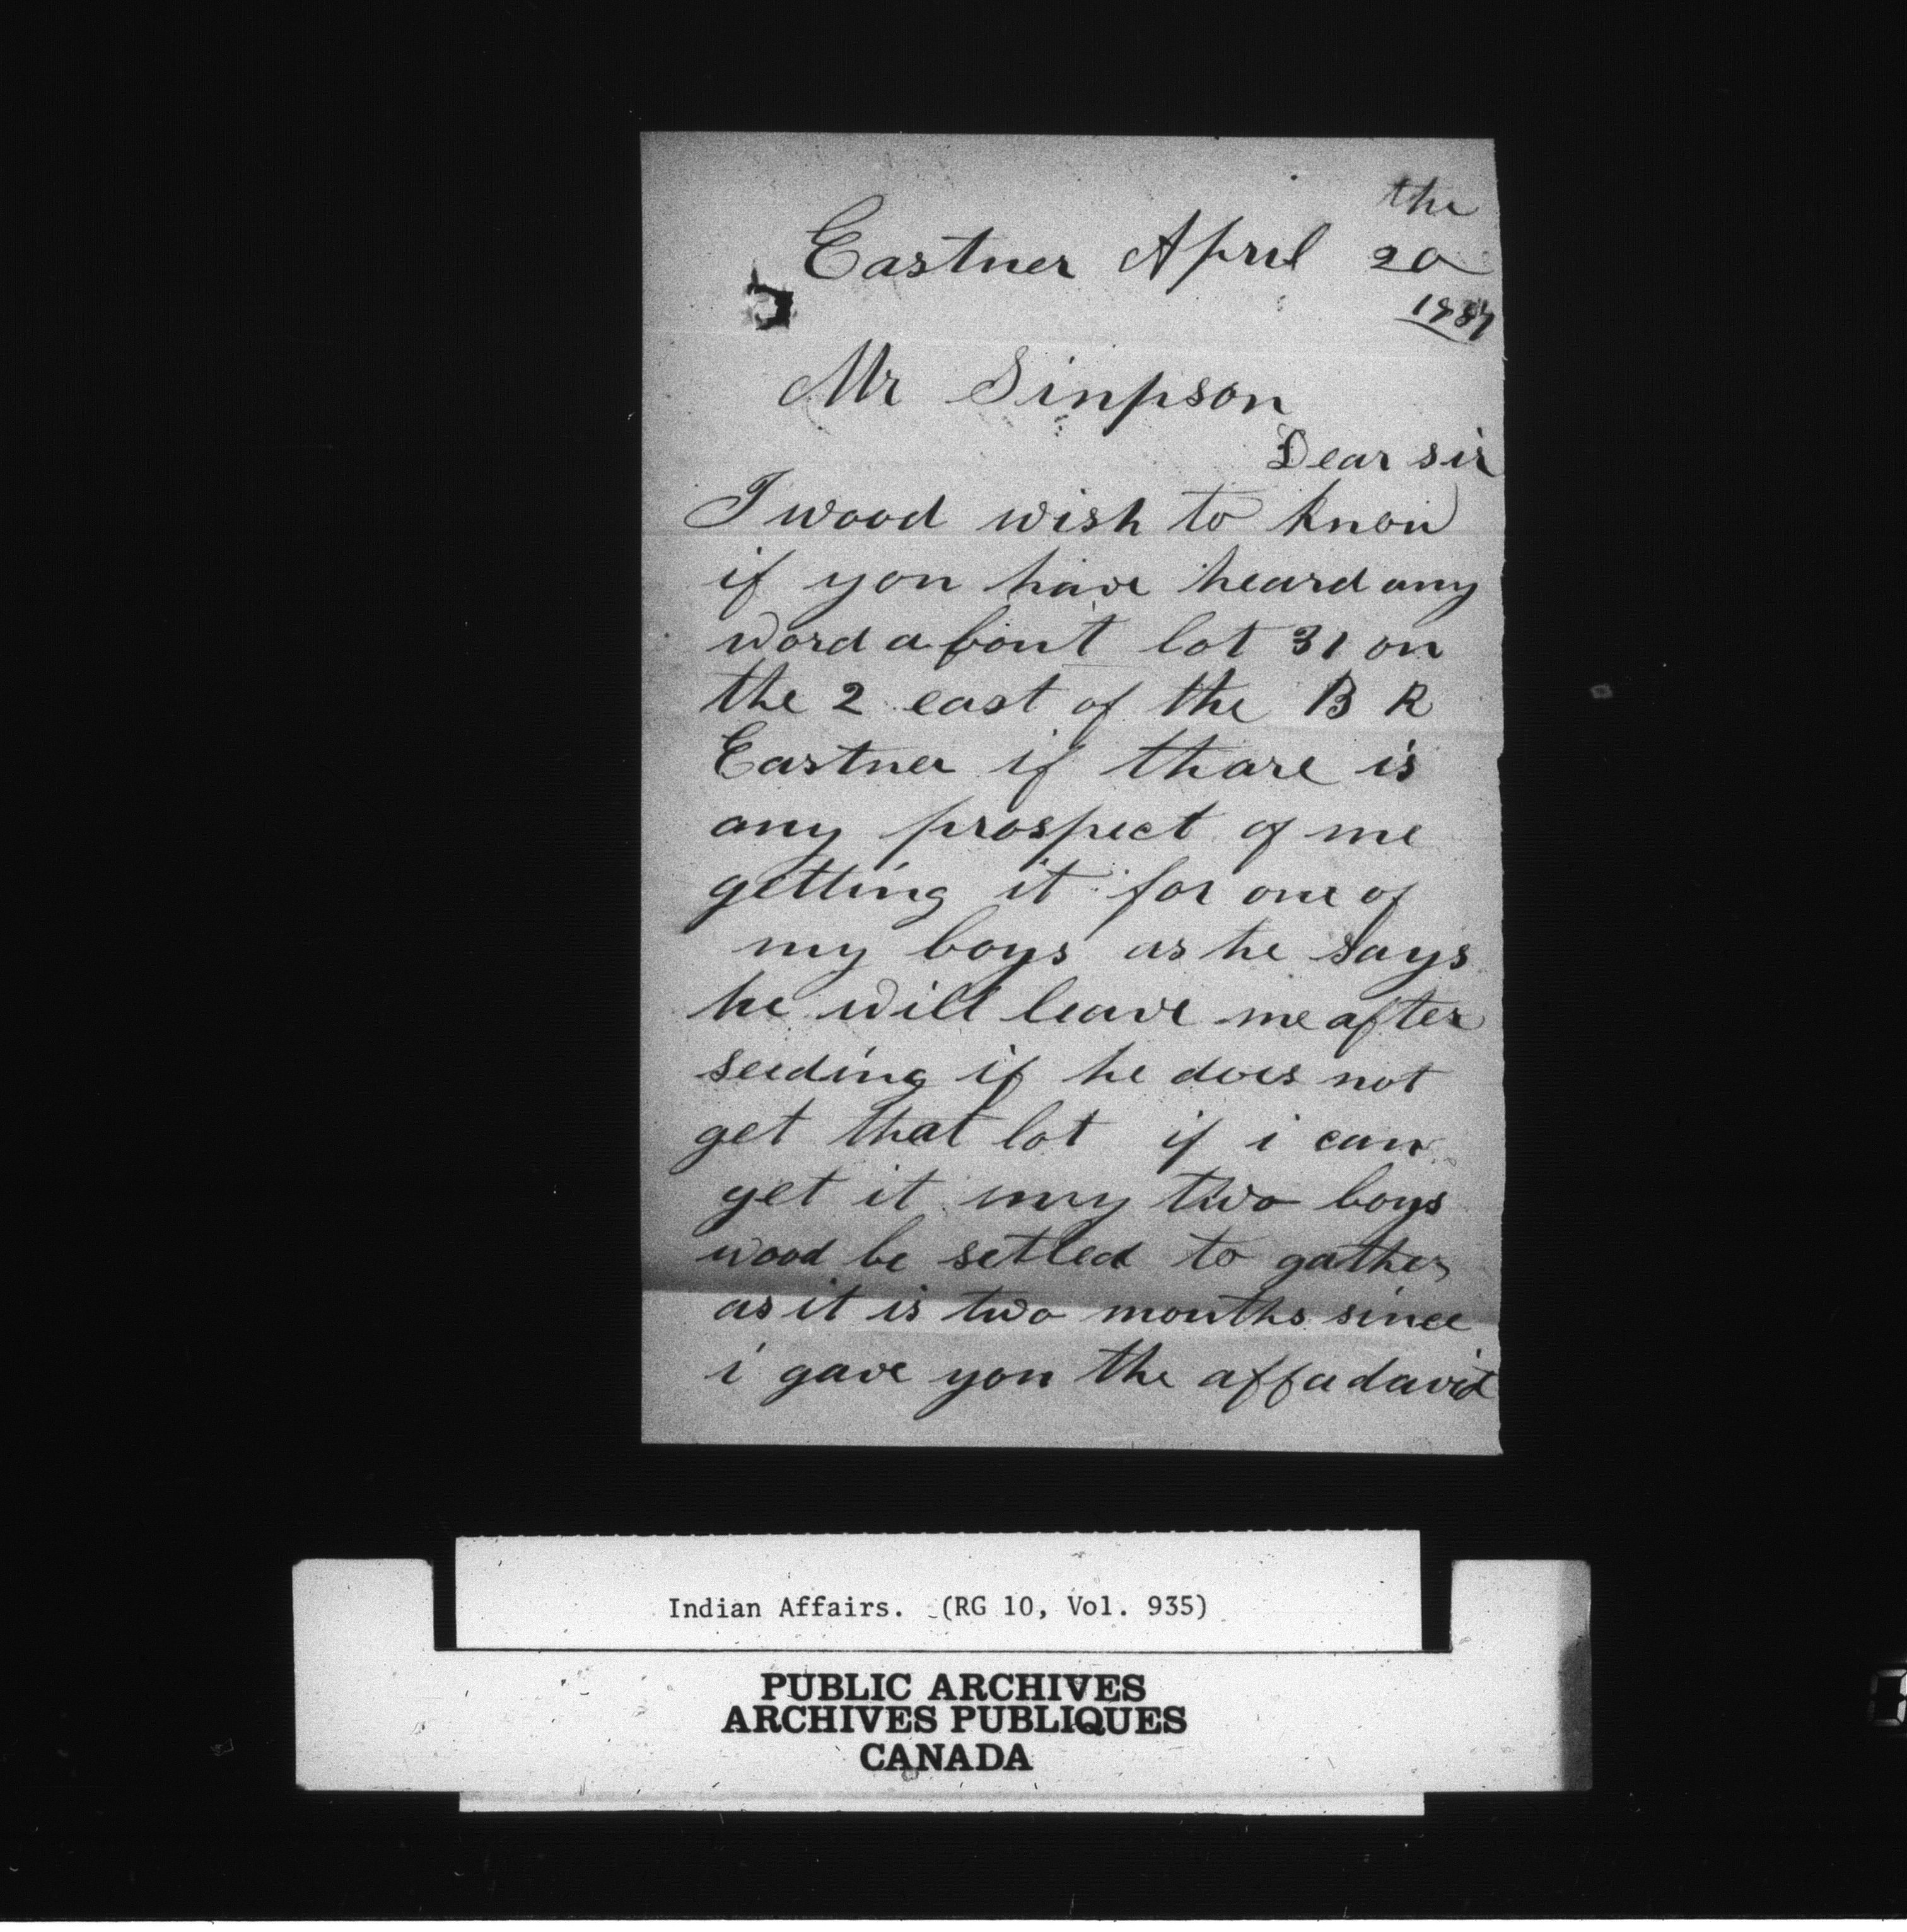 the
Eastner April 20
1887
Mr Sinpson
Dear sir
I wood wish to know
if you have heard any
word a bout lot 31 on
the 2 east of the B R
Eastner if thare is
any prospect of me
getting it for one of
my boys as he says
he will leave me after
seeding if he does not
get that lot if i can
get it my two boys
wood be setled to gather
as it is two months since
i gave you the affadavit
Indian Affairs. (RG 10, Vol. 935)
PUBLIC ARCHIVES
ARCHIVES PUBLIQUES
CANADA